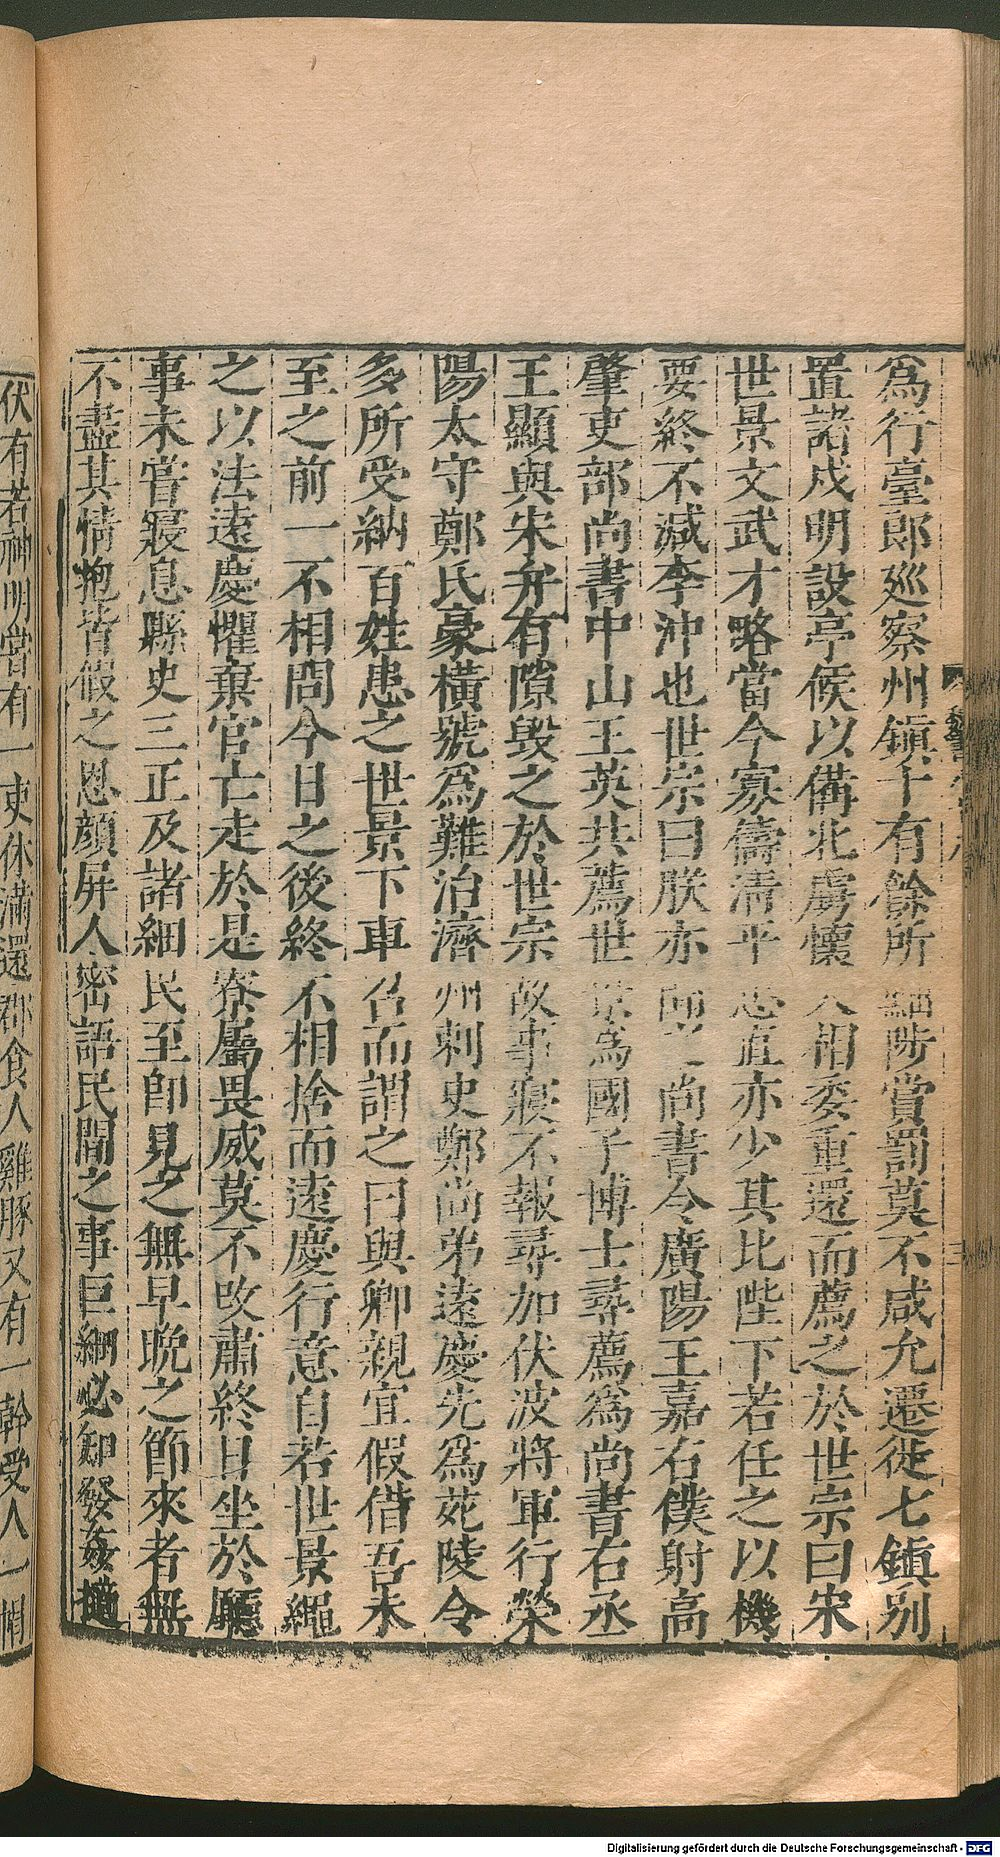 爲行臺郎廵察州鎮十有餘所黜陟賞罰莫不咸允遷徙七鎮别
置諸戍明設亭候以備北虜懷大相委重還而薦之於世宗曰宋
世景文武才略當今寡儔清平忠直亦少其比陛下若任之以機
要終不減李沖也世宗曰朕亦聞之尚書令廣陽王嘉右僕射高
肇吏部尚書中山王英共薦世景爲國子博士尋薦爲尚書右丞
王顯與宋弁有隙毁之於世宗故事寢不報尋加伏波將軍行滎
陽太守鄭氏豪橫號爲難治濟州刺史鄭尚弟遠慶先爲苑陵令
多所受納百姓患之世景下車召而謂之曰與卿親宜假借吾未
至之前一不相問今日之後終不相捨而遠慶行意自若世景繩
之以法遠慶懼棄官亡走於是寮屬畏威莫不改肅終日坐於廳
事未嘗寢息縣史三正及諸細民至即見之無早晚之節來者無
不盡其情抱皆假之恩顔屏人密語民間之事巨細必知發姦擿
伏有若神明嘗有一吏休滿還郡食人雞豚又有一幹受人一帽
Digitalisierung gefördert durch die Deutsche Forschungsgemeinschaft - DFG